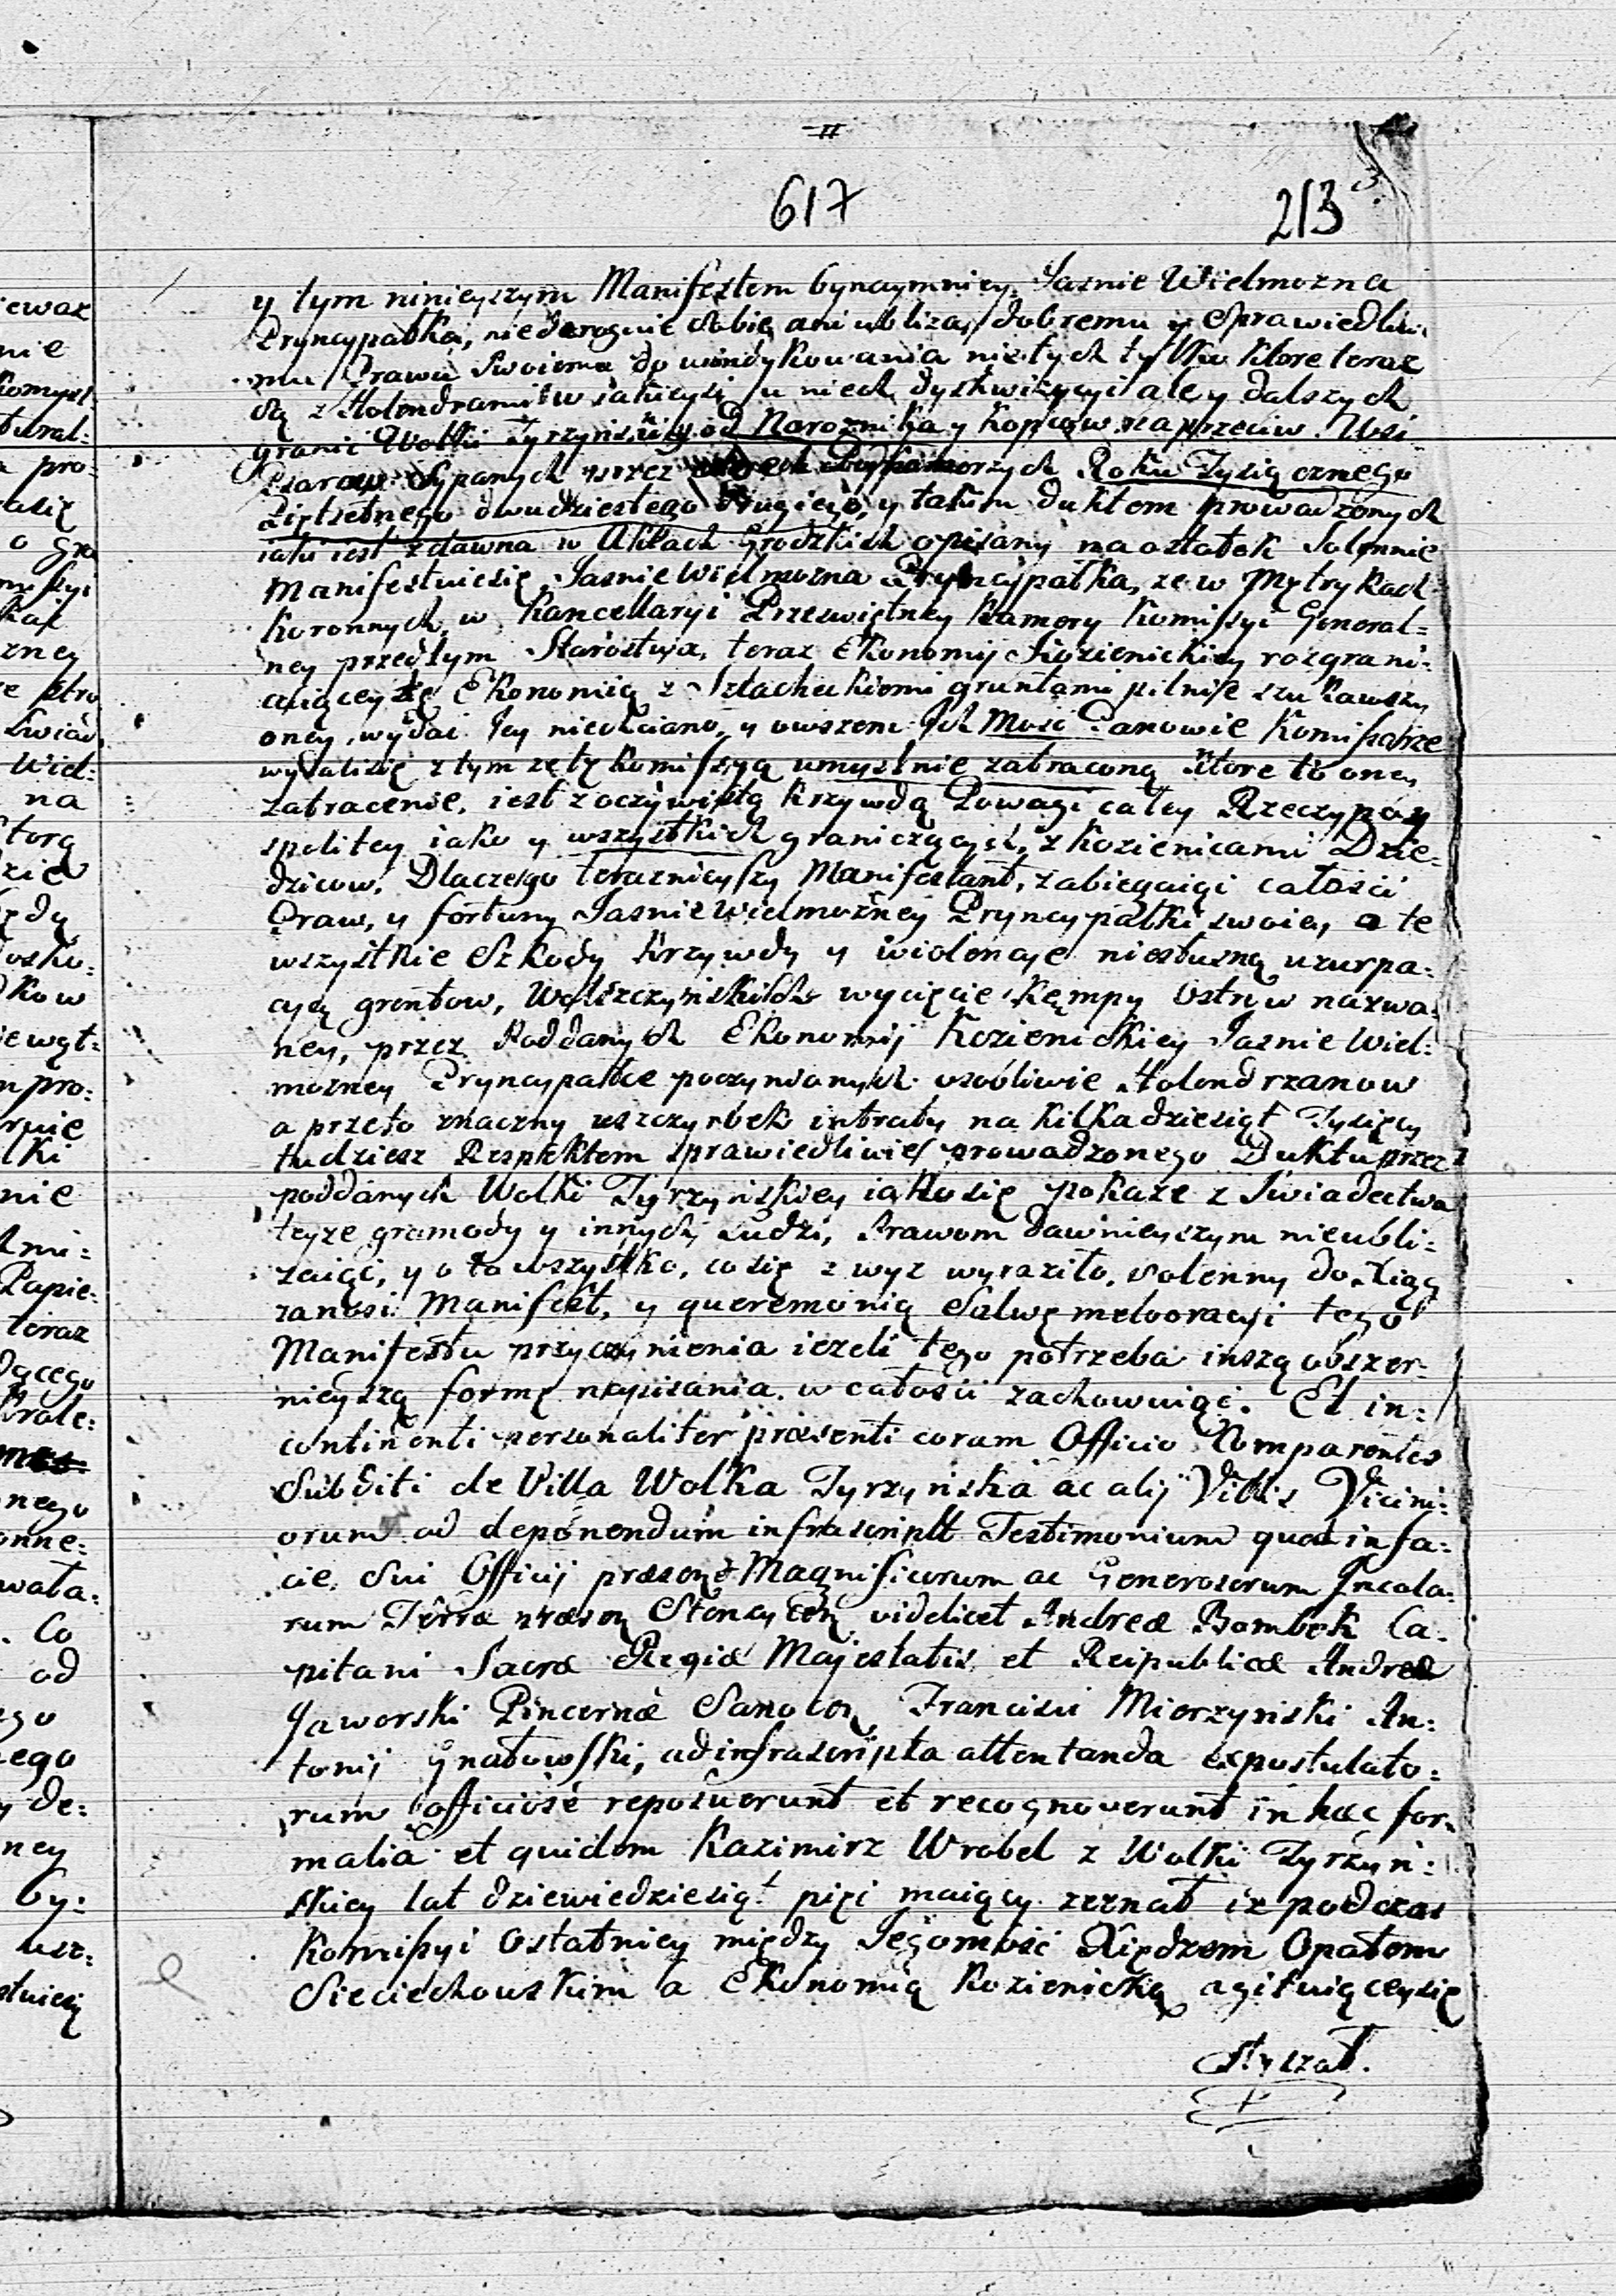 617
213
y tym ninieyszym Manifestem bynaymniey Jasnie Wielmozna
Pryncypałka, niederoguie sobie, ani ubliża, dobremu y sprawiedliwe-
mu Prawu swoiemu do windykowania nietych tylko ktore teraz
są z Holendrami w iakieysi u nich dyskwizycyi ale y dalszych
granic Wolki Tyrzyńskiey od Naroznika y kopcow naprzeciw Wsi
Psarow Sypanych przez Podkomorzych Roku Tysiącznego
Piętsetnego dwudziestego drugiego, y takim duktem prowadzonych
iaki iest zdawna w Aktach Grodzkich opisany naostatek Solennie
Manifestuiesię Jasnie Wielmozna Pryncypałka, ze w Metrykach
Koronnych, w Kancellaryi Przeswiętney Kamery Komissyi General=
ney przedtym Starostwa, teraz Ekonomij Kozienickiey rozgrani=
czaiącey tę Ekonomią z Szlacheckiemi gruntami pilnie szukawszy
oney, wydac Jey niechciano, y owszem Ich Mość Panowie Komissarze
wydalisię z tym ze tę Komissyą umyslnie zatracono, ktore to oney
zatracenie, iest z oczywistą krzywdą Powagi całey Rzeczypos
spolitey iako y wszystkich graniczących, z Kozienicami Dzie=
dzicow. Dlaczego teraznieyszy Manifestant, zabiegaiąc całosci
Praw, y fortuny Jasnie Wielmożney Pryncypałki swoiey, o te
wszystkie Szkody krzywdy y wiolencye niesłuszną uzurpa=
cyą grontow, Wolszczyńskich wycięcie Kępy Ostrow nazwa=
ney, przez Poddanych Ekonomij Kozienickiey Jasnie Wiel=
mozney Pryncypałce poczynionych osobliwie Holendrzanow
a przeto znaczny uszczyrbek intraty na kilkadziesiąt Tysięcy
tudziesz Respektem sprawiedliwie prowadzonego Duktu przez
poddanych Wolki Tyrzyńskiey iako się pokaze z Swiadectwa
teyze gromady y innych Ludzi, Prawom dawnieyszym nieubli=
zaiąc, y o to wszystko, co się zwyz wyraziło, solenny do Xiąg
zanosi Manifest, y queremonią Salwę melioracyi tego
Manifestu przyczynienia iezeli tego potrzeba inszą obszer=
nieyszą formę napisania w całosci zachowuiąc. Et in=
continenti personaliter præsenti coram Officio Comparentes
Subditi de Villa Wolka Tyrzyńska ac alij Villis Vicini=
orum ad deponendum infrascript Testimonium quod in fa=
cie, Sui Officij præsens Magnificorum ac Generosorum Incola=
rum Terræ præsen Stencycen videlicet Andreæ Bombek Ca=
pitani Sacræ Regiæ Majestatis et Reipublicæ Andreæ
Jaworski Pincernæ Sanocen Francisci Mierzyński An=
tonij Gnatowski, ad infrascripta attentanda expostulato=
rum officiose reposuerunt et recognoverunt in hæc for=
malia et quidem Kazimirz Wrobel z Wolki Tyrzyń=
skiey lat dziewiedziesiąt pięc maiący zeznał iz podczas
Komissyi Ostatniey między Jegomość Xiędzem Opatem
Sieciechowskim a Ekonomią Kozienicką agituiąceysię
słyszał.